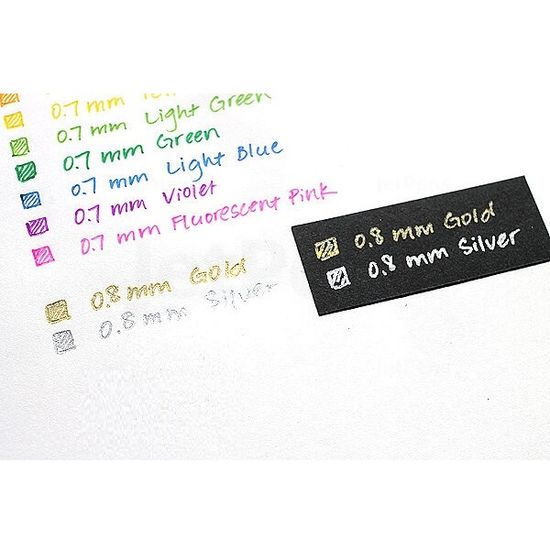 0.7 mm
0.7 mm Light Green
0.7 mm Green
0.7 mm Light Blue
0.7 mm Violet
0.7 mm Fluorescent Pink
0.8 mm Gold
0.8 mm Silver
0.8 mm Gold
0.8 mm Silver